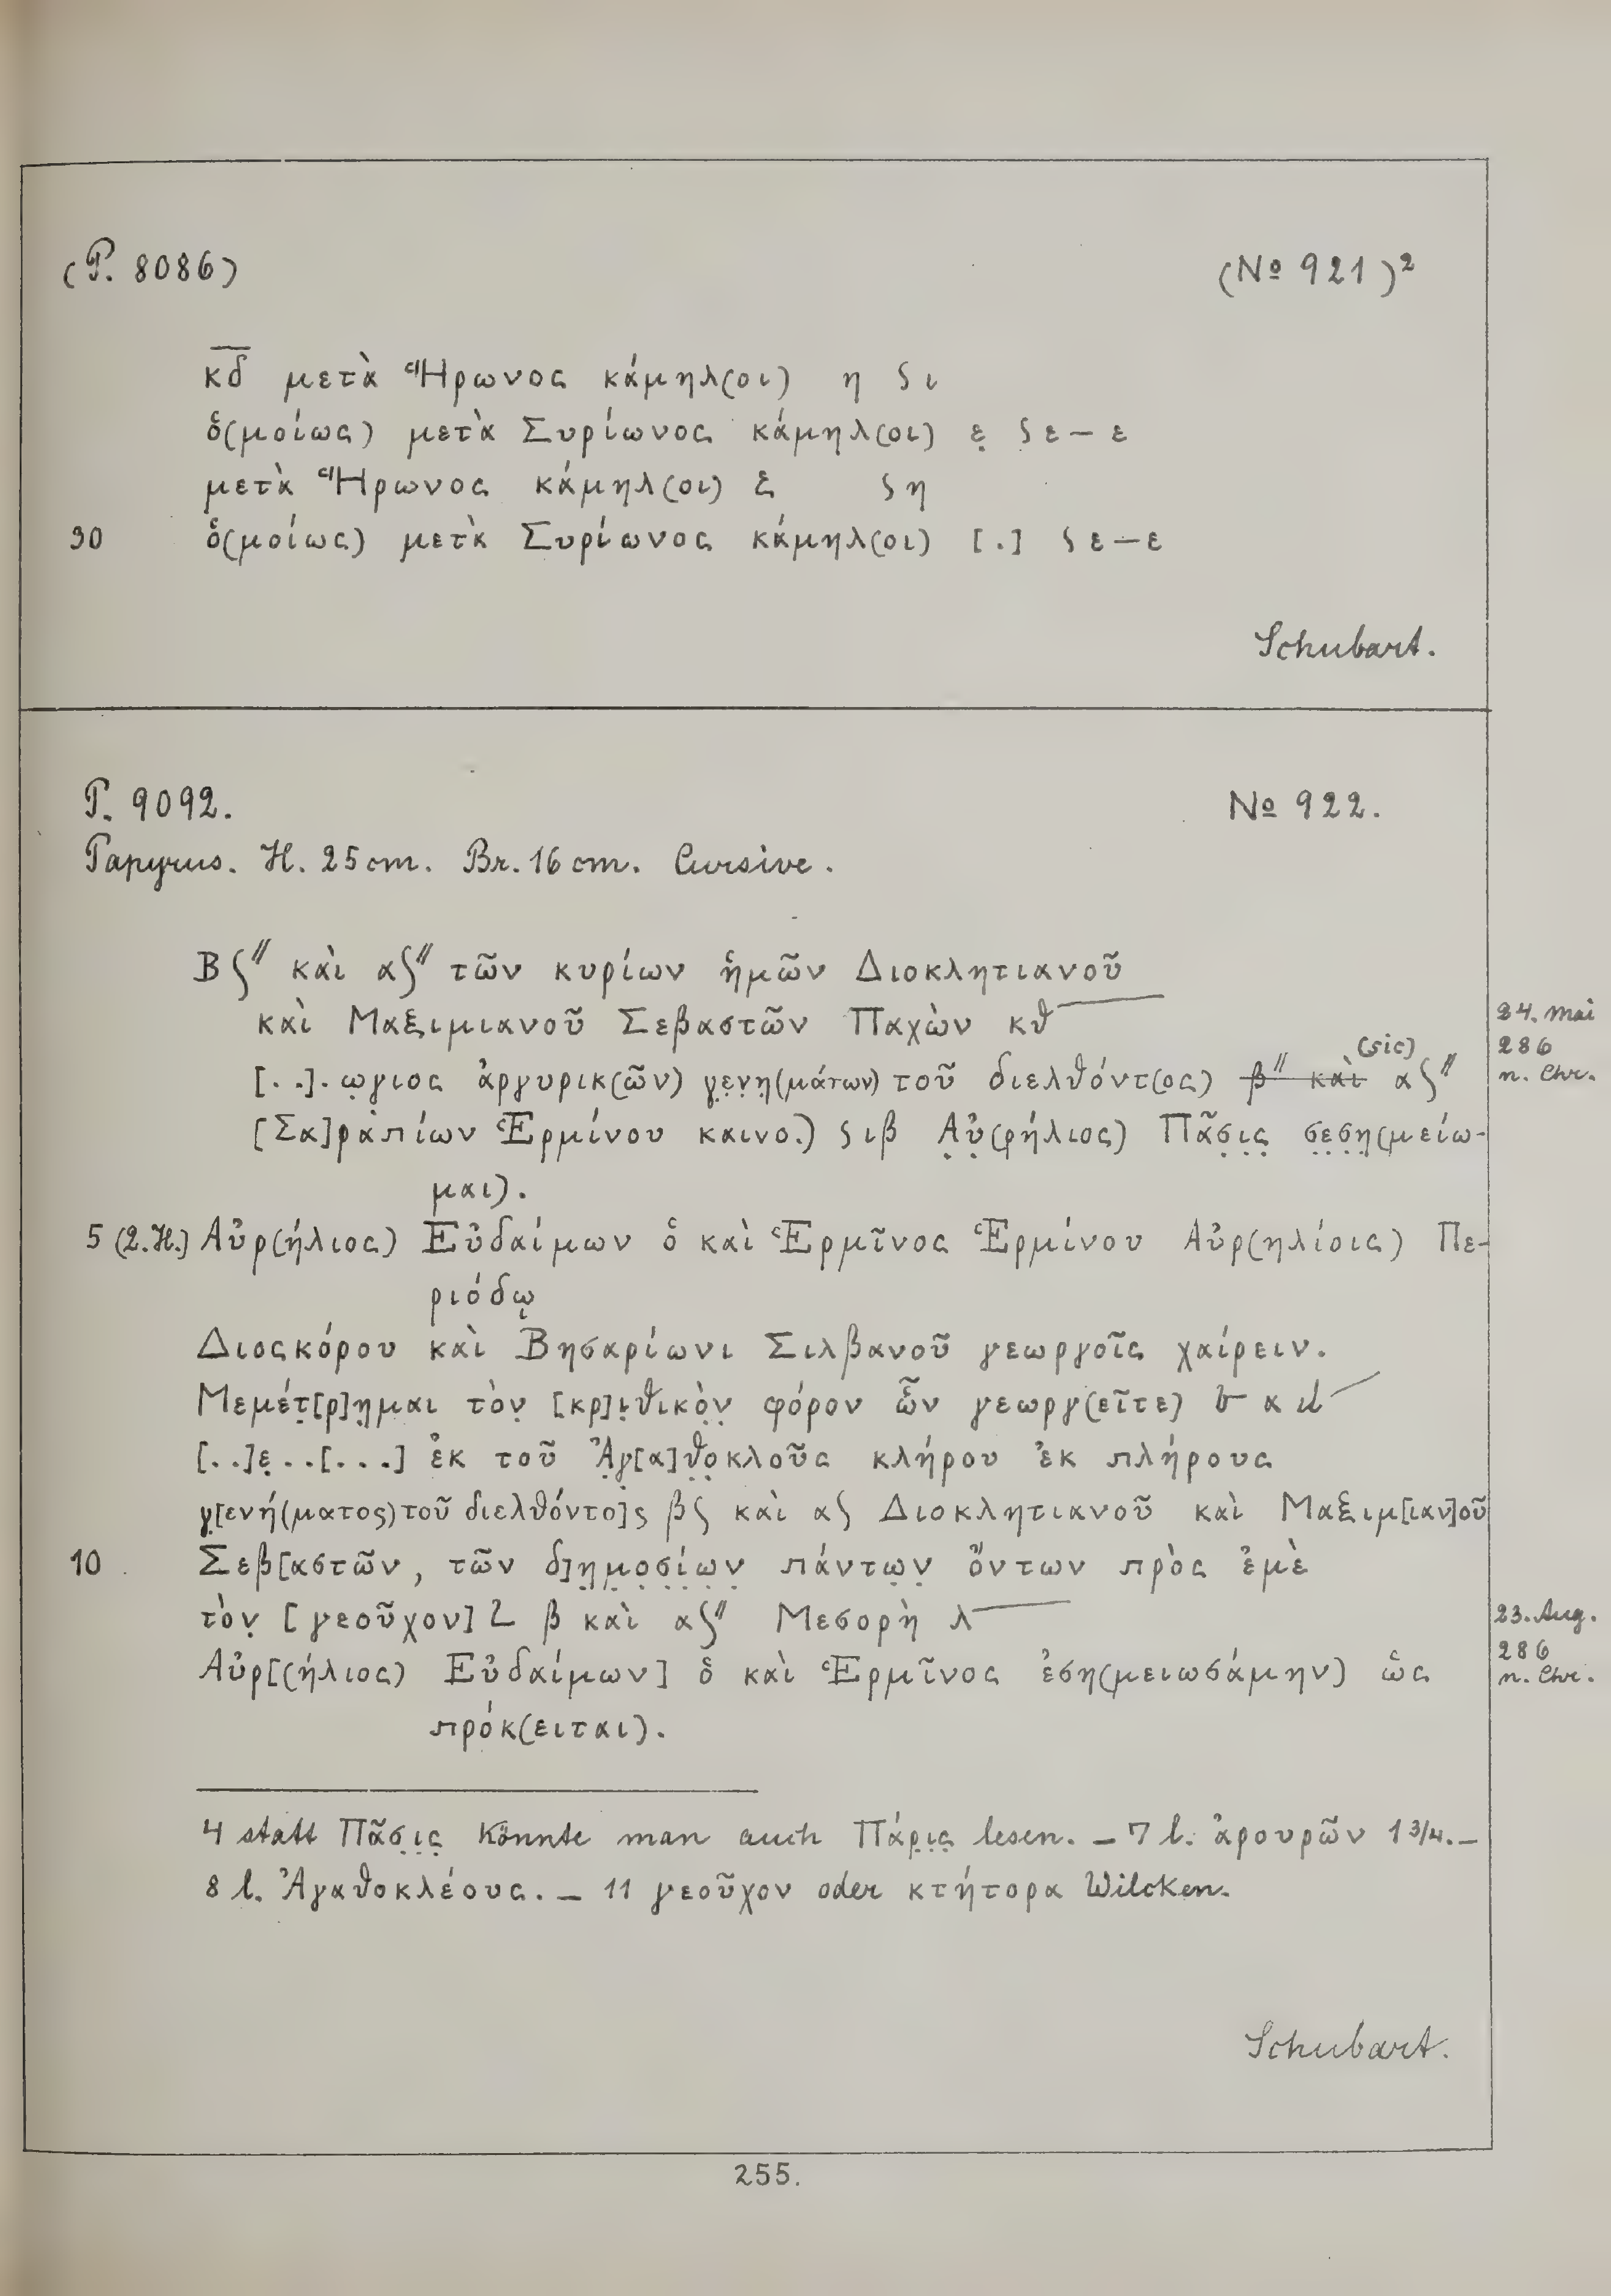 (P. 8086) (No 921)²
κ̅δ̅ μετὰ Ἥρωνος κάμηλ(οι) η ϛ ι
ὁ(μοίως) μετὰ Συρίωνος κάμηλ(οι) ε̣ ϛ ε – ε
μετὰ Ἥρωνος κάμηλ(οι) ξ ϛ η
30 ὁ(μοίως) μετὰ Συρίωνος κάμηλ(οι) [.] ϛ ε – ε
Schubart.
P. 9092. No 922.
Papyrus. H. 25 cm. Br. 16 cm. Cursive.
Βϛ″ καὶ αϛ″ τῶν κυρίων ἡμῶν Διοκλητιανοῦ
καὶ Μαξιμιανοῦ Σεβαστῶν Παχὼν κθ
24. Mai
286
n. Chr.
(sic)
[..]. ω̣γιος ἀργυρικ(ῶν) γ̣ε̣ν̣η̣(μάτων) τοῦ διελθόντ(ος) β″ καὶ αϛ″
[Σα]ραπίων Ἑρμίνου καινο.) ϛ ιβ Α̣ὐ̣(ρήλιος) Πᾶσ̣ι̣ς̣ σ̣ε̣σ̣η̣(μείω-
μαι).
5 (2.H.) Αὐρ(ήλιος) Εὐδαίμων ὁ καὶ Ἑρμῖνος Ἑρμίνου Αὐρ(ηλίοις) Πε-
ριόδῳ
Διοςκόρου καὶ Βησαρίωνι Σιλβανοῦ γεωργοῖς χαίρειν.
Μεμέτ̣[ρ]η̣μαι τὸν̣ [κρ]ι̣θικὸ̣ν̣ φόρον ὧν γεωργ(εῖτε) α
[..]ε̣..[...] ἐκ τοῦ Ἀ̣γ̣[α]θ̣ο̣κλοῦς κλήρου ἐκ πλήρους
γ̣[ενή(ματος) τοῦ διελθόντο]ς βϛ καὶ αϛ Διοκλητιανοῦ καὶ Μαξιμ[ιαν]οῦ
10 Σεβ[αστῶν, τῶν δ]η̣μ̣ο̣σ̣ί̣ω̣ν̣ πάντω̣ν̣ ὄντων πρὸς ἐμὲ
τὸν̣ [γεοῦχον] L β καὶ αϛ″ Μεσορὴ λ
23. Aug.
286
n. Chr.
Αὐρ[(ήλιος) Εὐδαίμων] ὁ καὶ Ἑρμῖνος ἐση(μειωσάμην) ὡς
πρόκ(ειται).
4 statt Πᾶσ̣ι̣ς̣ könnte man auch Πάρ̣ι̣ς̣ lesen. – 7 l. ἀρουρῶν 1 3/4. –
8 l. Ἀγαθοκλέους. – 11 γεοῦχον oder κτήτορα Wilcken.
Schubart.
255.